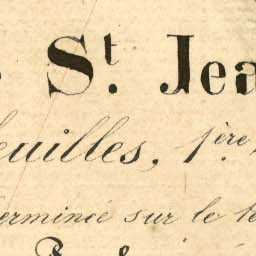 St. Jea
euilles, 1ère
erminée sur le te